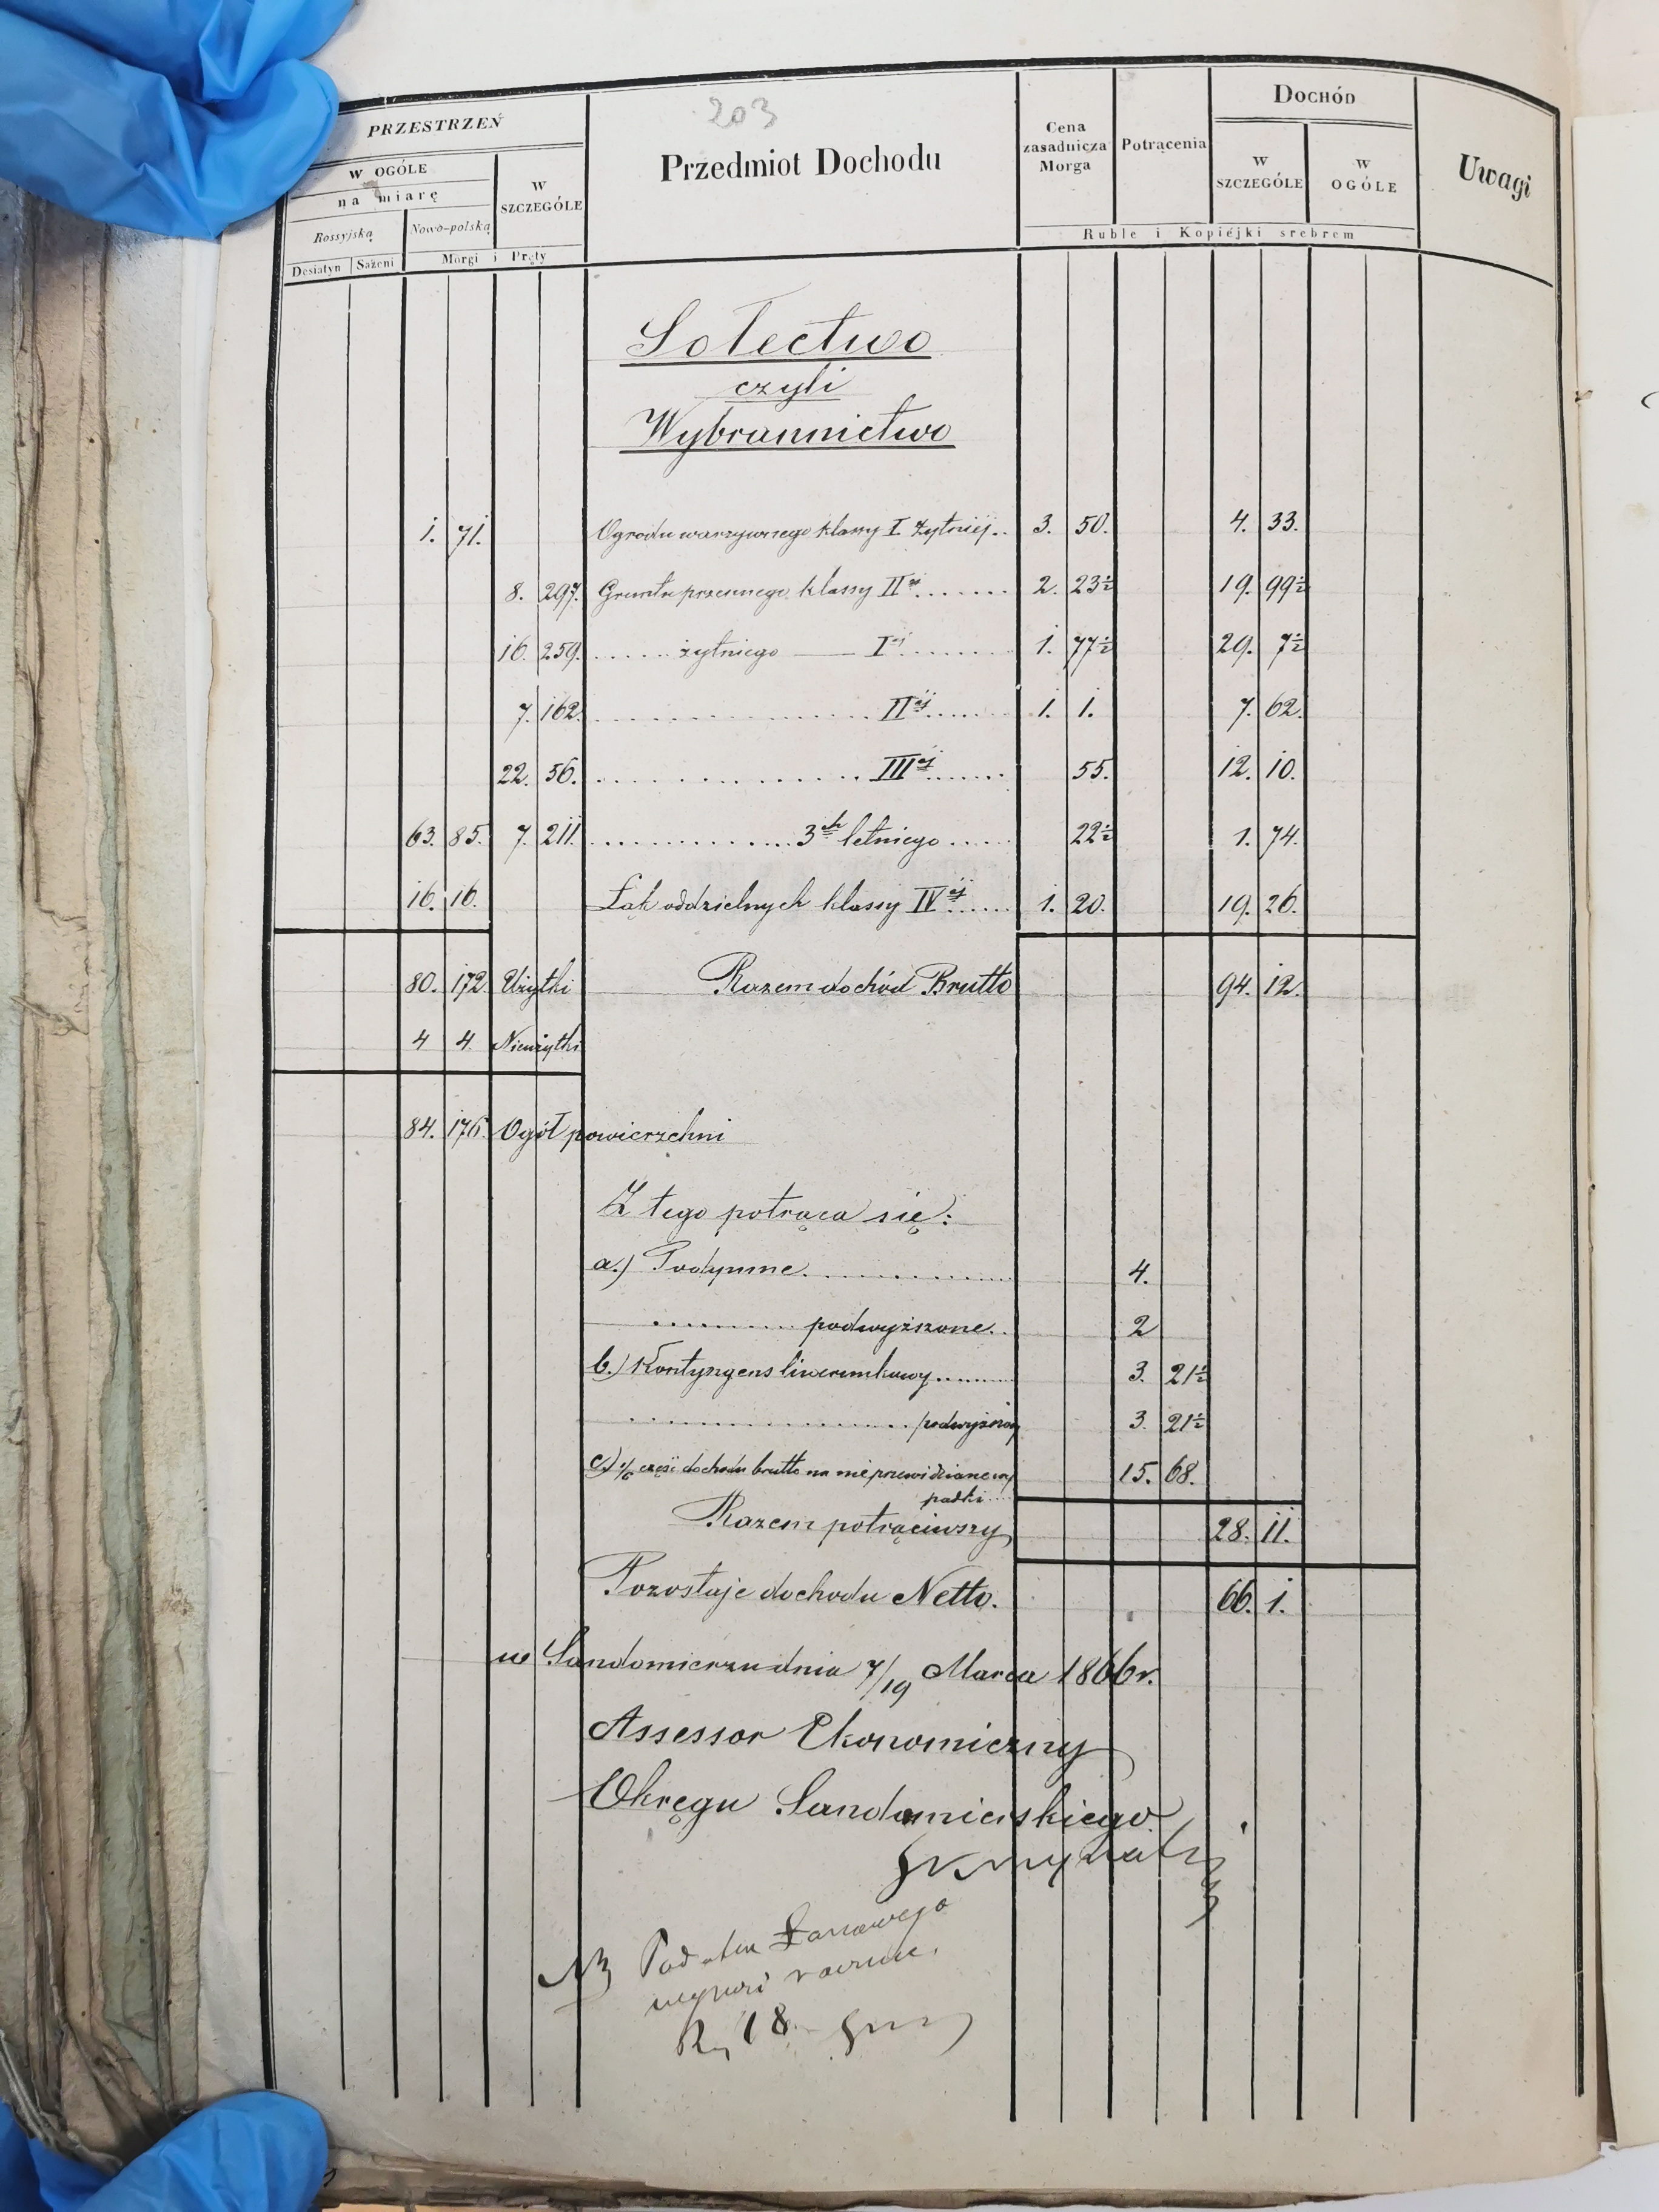 203
PRZESTRZEŃ
W OGÓLE
na miarę
Rossyjską
Nowo-polską
W SZCZEGÓLE
Desiatyn
Sażeni
Morgi i Pręty
Przedmiot Dochodu
Cena zasadnicza Morga
Potrącenia
DOCHÓD
W SZCZEGÓLE
W OGÓLE
Ruble i Kopiéjki srebrem
Uwagi
Sołectwo
czyli
Wybrannictwo
1. 71. Ogrodu warzywnego klassy I żytniej.. 3. 50. 4. 33.
8. 297. Gruntu pszennego klassy IIej....... 2. 23½ 19. 99½
16. 259. ..... żytniego — Iej....... 1. 77½ 29. 7½
7. 162. .................. IIej...... 1. 1. 7. 62.
22. 56. ................ IIIej...... 55. 12. 10.
63. 85. 7. 211. ............. 3ch letniego ..... 22½ 1. 74.
16. 16. Łąk oddzielnych klassy IVej..... 1. 20. 19. 26.
80. 172. Użytki Razem dochód Brutto 94. 12.
4 4. Nieużytki
84. 176. Ogół powierzchni
Z tego potrąca się:
a.) Podymne............... 4.
.......... podwyższone.. 2
b.) Kontyngens liwerunkowy......... 3. 21½
.................. podwyższony 3. 21½
c.) 1/6 części dochodu brutto na nieprzewidziane wy
padki... 15. 68.
Razem potrąciwszy 28. 11.
Pozostaje dochodu Netto. 66. 1.
w Sandomierzu dnia 7/19 Marca 1866 r.
Assessor Ekonomiczny
Okręgu Sandomierskiego
NB Podatku Łanowego
wynosi rocznie.
18